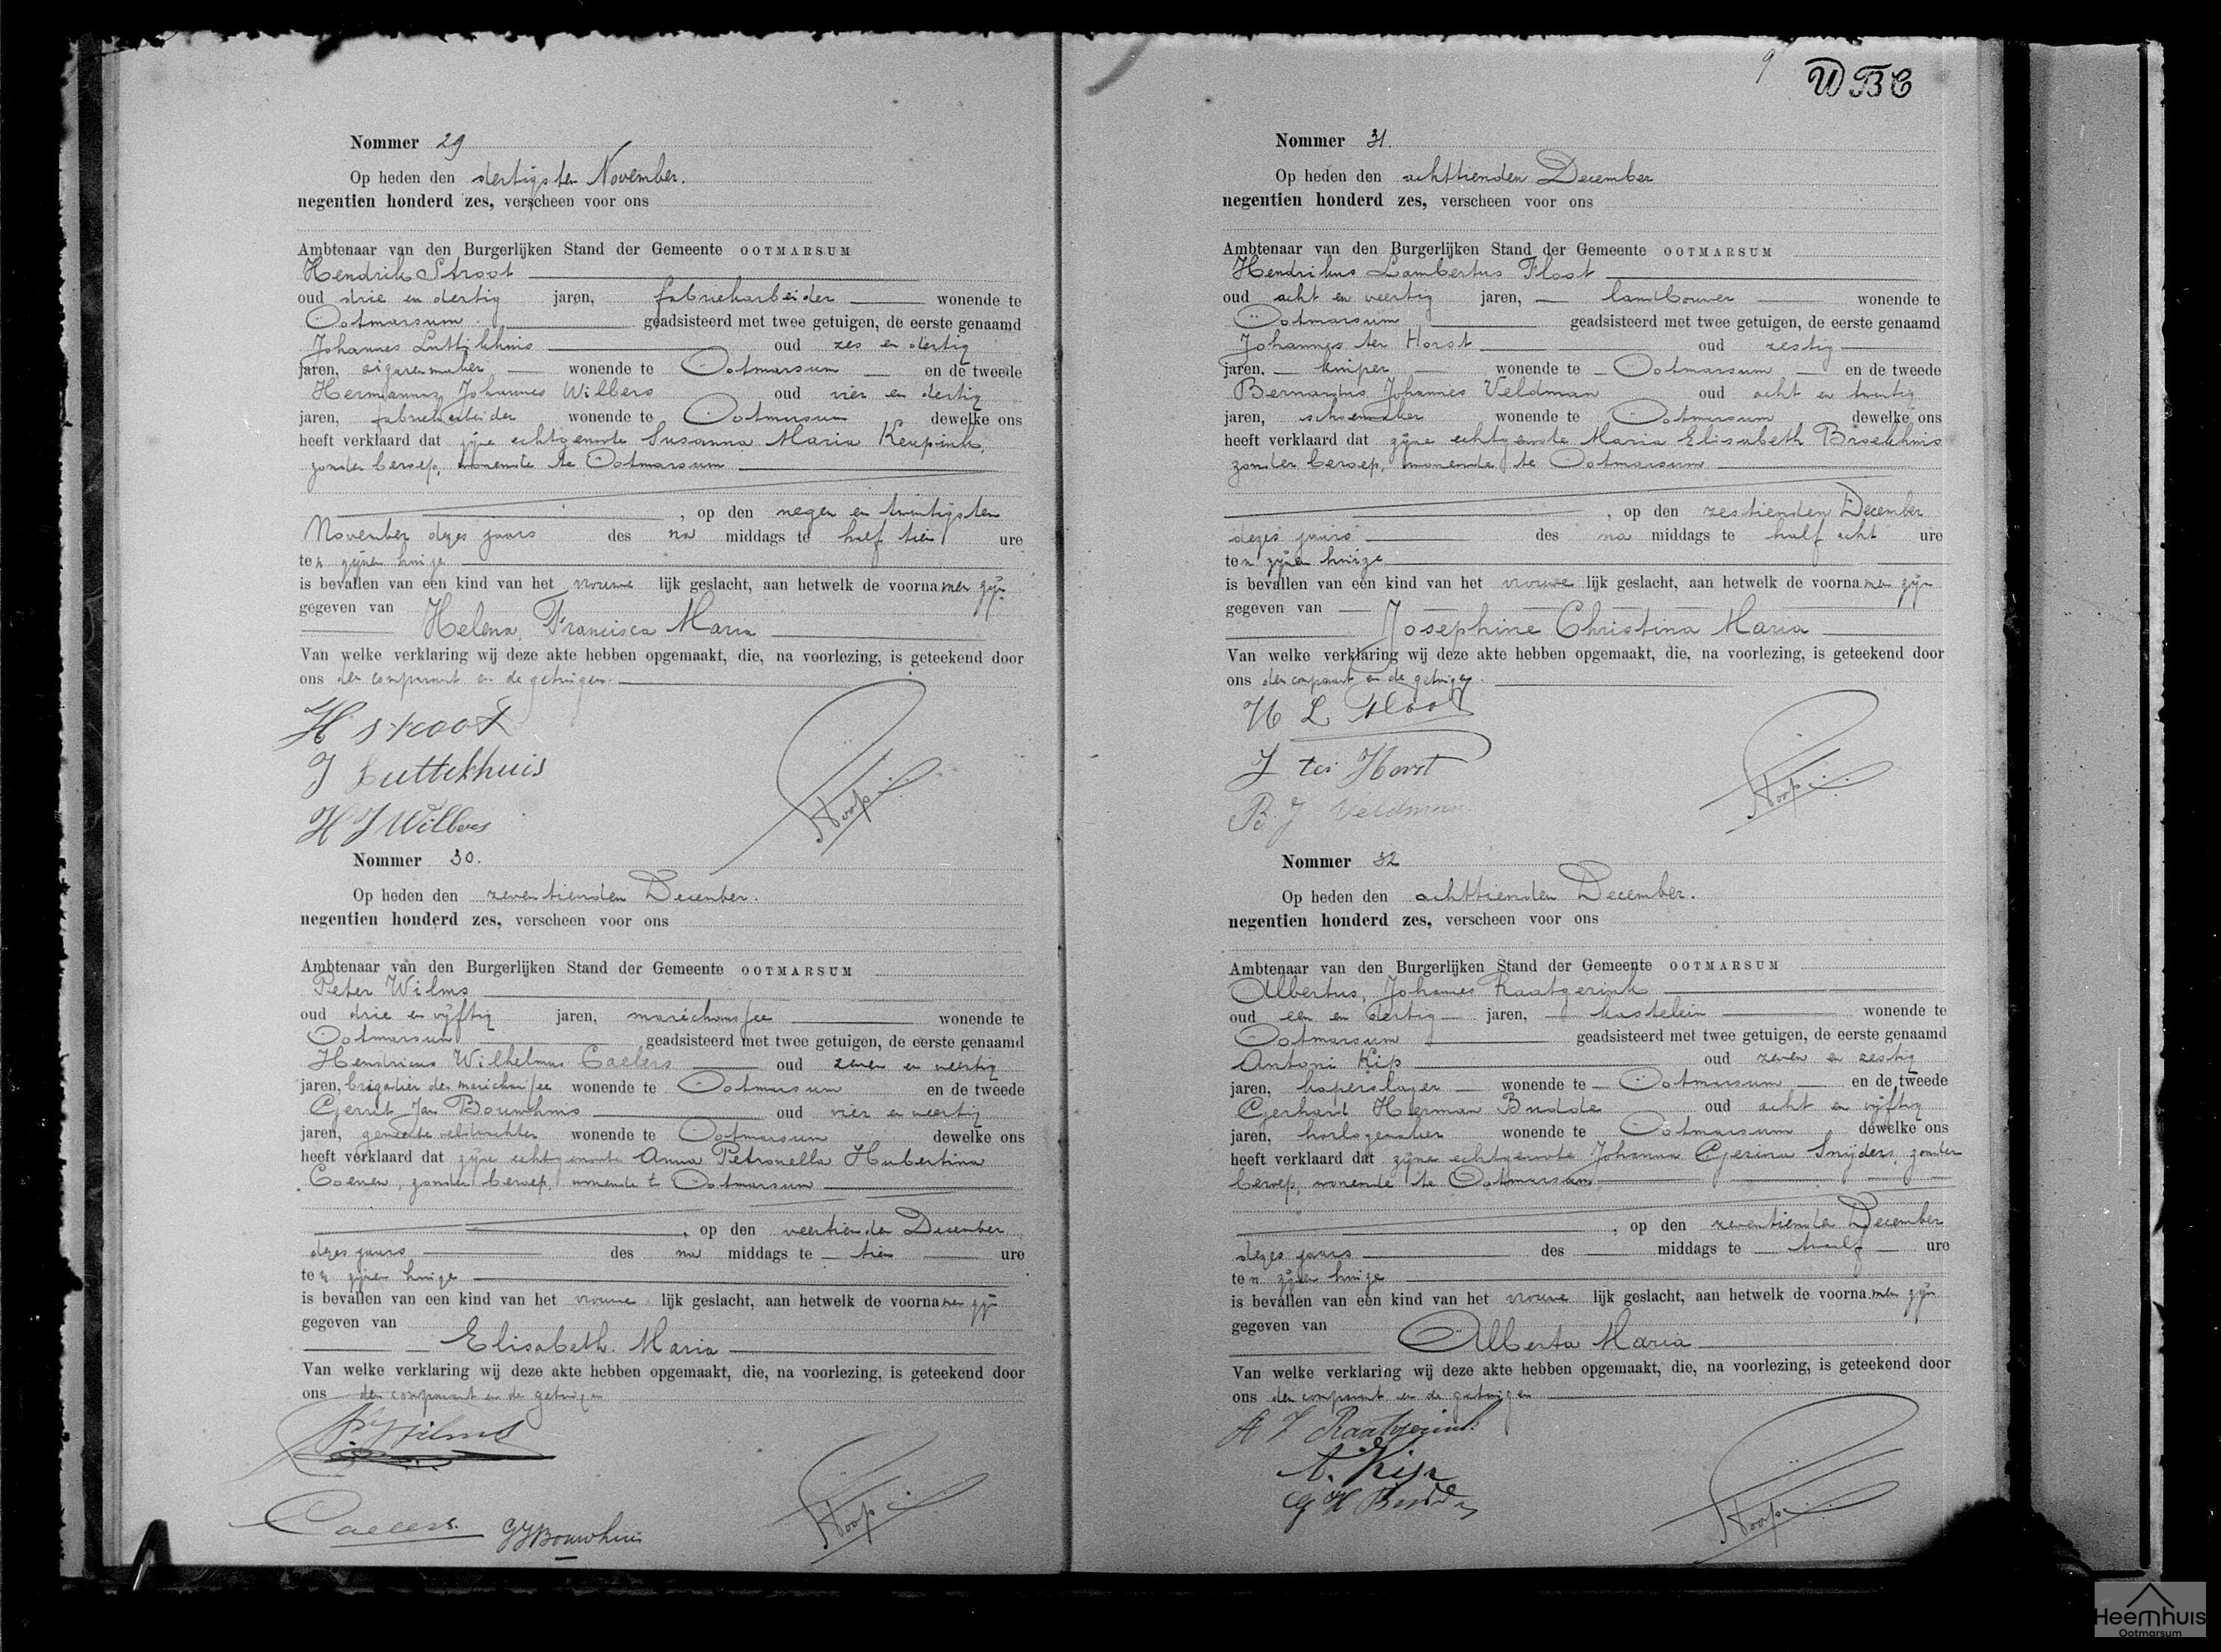 Nommer 29
Op heden den dertigsten November.
negentien honderd zes, verscheen voor ons
Ambtenaar van den Burgerlijken Stand der Gemeente OOTMARSUM
Hendrik Stroot
oud drie en dertig jaren, fabriekarbeider wonende te
Ootmarsum geadsisteerd met twee getuigen, de eerste genaamd
Johannes Luttikhuis oud zes en dertig
jaren, sigarenmaker wonende te Ootmarsum en de tweede
Hermannus Johannes Wilbers oud vier en dertig
jaren, fabriekarbeider wonende te Ootmarsum dewelke ons
heeft verklaard dat zijne echtgenoote Susanna Maria Keupink,
zonder beroep, wonende te Ootmarsum
, op den negen en twintigsten
November dezes jaars des na middags te half tien ure
ten zijnen huize
is bevallen van een kind van het vrouwe lijk geslacht, aan hetwelk de voornamen zijn
gegeven van Helena, Francisca Maria
Van welke verklaring wij deze akte hebben opgemaakt, die, na voorlezing, is geteekend door
ons den comparant en de getuigen.
H Stroot
J Luttikhuis
H J Wilbers
Nommer 30.
Op heden den zeventienden December.
negentien honderd zes, verscheen voor ons
Ambtenaar van den Burgerlijken Stand der Gemeente OOTMARSUM
Peter Wilms
oud drie en vijftig jaren, maréchaussee wonende te
Ootmarsum geadsisteerd met twee getuigen, de eerste genaamd
Hendricus Wilhelmus Caelers oud zeven en veertig
jaren, brigadier der marechaussee wonende te Ootmarsum en de tweede
Gerrit Jan Bouwhuis oud vier en veertig
jaren, gemeente veldwachter wonende te Ootmarsum dewelke ons
heeft verklaard dat zijne echtgenoote Anna Petronella Hubertina
Coenen, zonder beroep, wonende te Ootmarsum
, op den veertienden December
dezes jaars des na middags te tien ure
ten zijnen huize
is bevallen van een kind van het vrouwe lijk geslacht, aan hetwelk de voornamen zijn
gegeven van
Elisabeth. Maria
Van welke verklaring wij deze akte hebben opgemaakt, die, na voorlezing, is geteekend door
ons den comparant en de getuigen
P Wilms
Caelers. GJBouwhuis
9 WBC
Nommer 31.
Op heden den achttienden December
negentien honderd zes, verscheen voor ons
Ambtenaar van den Burgerlijken Stand der Gemeente OOTMARSUM
Hendrikus Lambertus Floot
oud acht en veertig jaren, landbouwer wonende te
Ootmarsum geadsisteerd met twee getuigen, de eerste genaamd
Johannes ter Horst oud zestig
jaren, kuiper wonende te Ootmarsum en de tweede
Bernardus Johannes Veldman oud acht en twintig
jaren, schoenmaker wonende te Ootmarsum dewelke ons
heeft verklaard dat zijne echtgenoote Maria Elisabeth Broekhuis
zonder beroep, wonende te Ootmarsum
, op den zestienden December
dezes jaars des na middags te half acht ure
ten zijnen huize
is bevallen van een kind van het vrouwe lijk geslacht, aan hetwelk de voornamen zijn
gegeven van
Josephine Christina Maria
Van welke verklaring wij deze akte hebben opgemaakt, die, na voorlezing, is geteekend door
ons den comparant en de getuigen.
H L Floot
J ter Horst
B J Veldman
Nommer 32
Op heden den achttienden December.
negentien honderd zes, verscheen voor ons
Ambtenaar van den Burgerlijken Stand der Gemeente OOTMARSUM
Albertus, Johannes Raatgerink
oud een en dertig jaren, kastelein wonende te
Ootmarsum geadsisteerd met twee getuigen, de eerste genaamd
Antoni Kip oud zeven en zestig
jaren, koperslager wonende te Ootmarsum en de tweede
Gerhard Herman Budde oud acht en vijftig
jaren, horlogemaker wonende te Ootmarsum dewelke ons
heeft verklaard dat zijne echtgenoote Johanna Gezina Snijders, zonder
beroep, wonende te Ootmarsum
, op den zeventienden December
dezes jaars des middags te twaalf ure
ten zijnen huize
is bevallen van een kind van het vrouwe lijk geslacht, aan hetwelk de voornamen zijn
gegeven van
Alberta Maria
Van welke verklaring wij deze akte hebben opgemaakt, die, na voorlezing, is geteekend door
ons den comparant en de getuigen
A J Raatgerink
A. Kip
G H Budde
Heemhuis
Ootmarsum